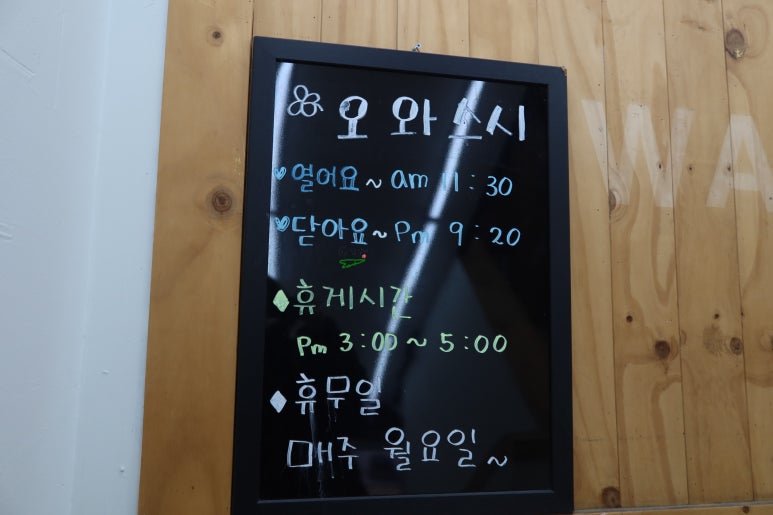 오와스시
열어요~ am 11:30
닫아요~ Pm 9:20
휴게시간
Pm 3:00~5:00
휴무일
매주 월요일~
WA